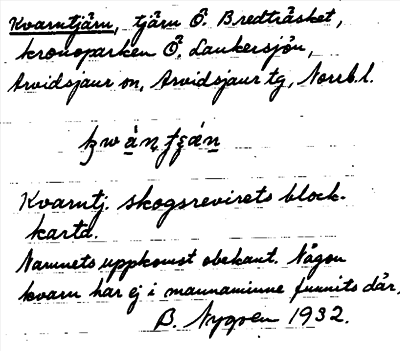 Kvarntjärn, tjärn Ö. Bredträsket,
kronoparken Ö. Laukersjön,
Arvidsjaur sn, Arvidsjaur tg, Norrb. l.
Kvarntj. skogsrevirets block-
karta.
Namnets uppkomst obekant. Någon
kvarn har ej i mannaminne funnits där.
B. Nygren 1932.